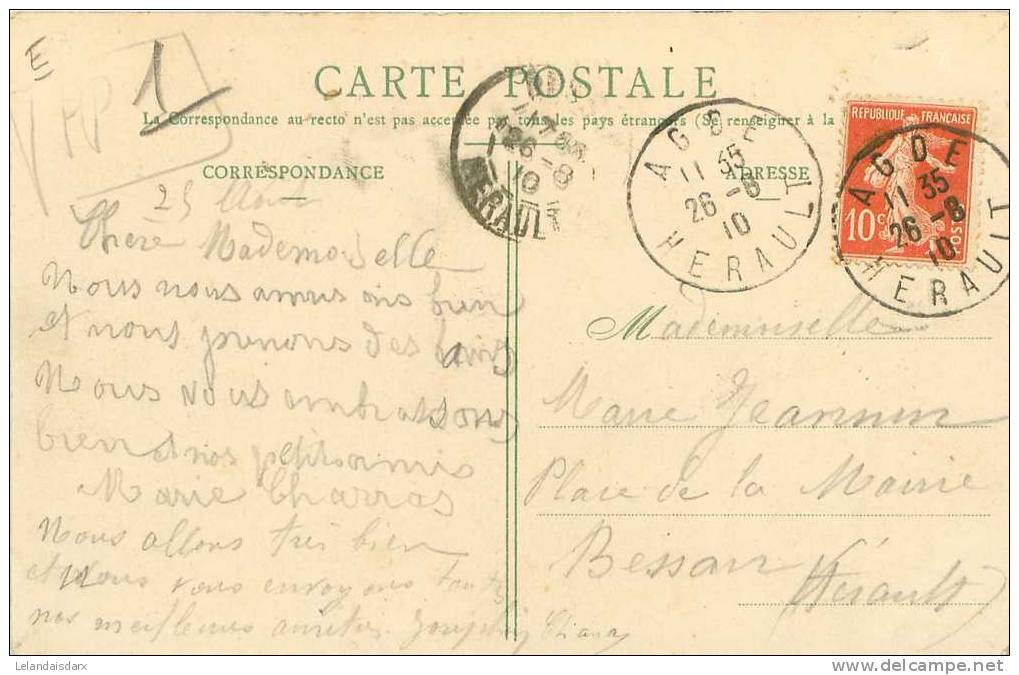 E
1
CARTE POSTALE
La Correspondance au recto n'est pas acceptée par tous les pays étrangers (Se renseigner à la
CORRESPONDANCE
ADRESSE
25 Août
Chère Mademoiselle
Nous nous amusons bien
et nous prenons des bains
Nous vous embrassons
bien et nos petits amis
Marie Charras
Nous allons très bien
et vous envoyons toutes
nos meilleures amitiés. Josephin
7
26-8
10
HERAULT
AGDE
11 35
26-8
10
HERAULT
REPUBLIQUE FRANÇAISE
10c
POSTES
AGDE
11 35
26-8
10
HERAULT
Mademoiselle
Marie Jeannin
Place de la Mairie
Bessan
Hérault
Lelandaisdarx
www.delcampe.net